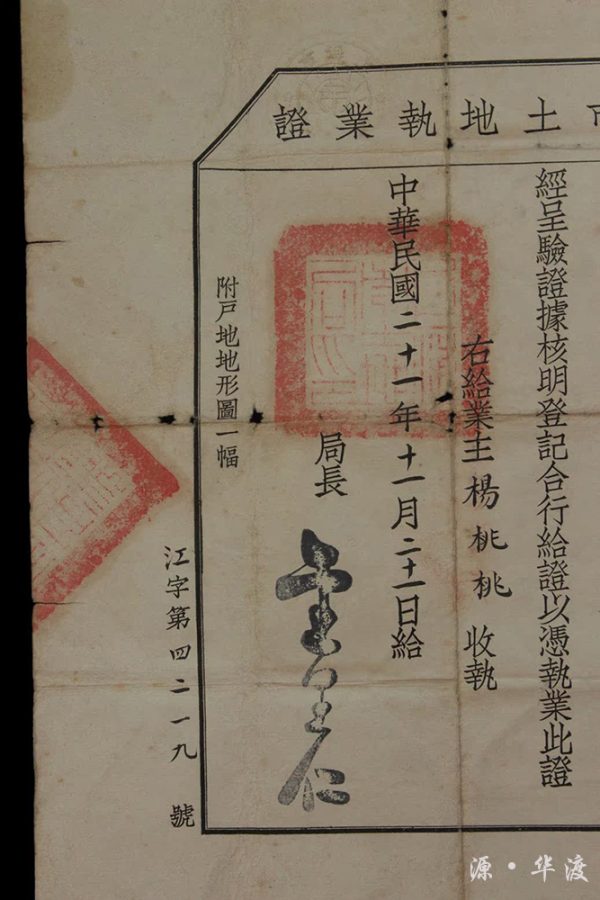 土地執業證
經呈驗證據核明登記合行給證以憑執業此證
右給業主楊桃桃收執
中華民國二十一年十一月二十一日給
局長
附戶地地形圖一幅
江字第四二一九號
源·华渡